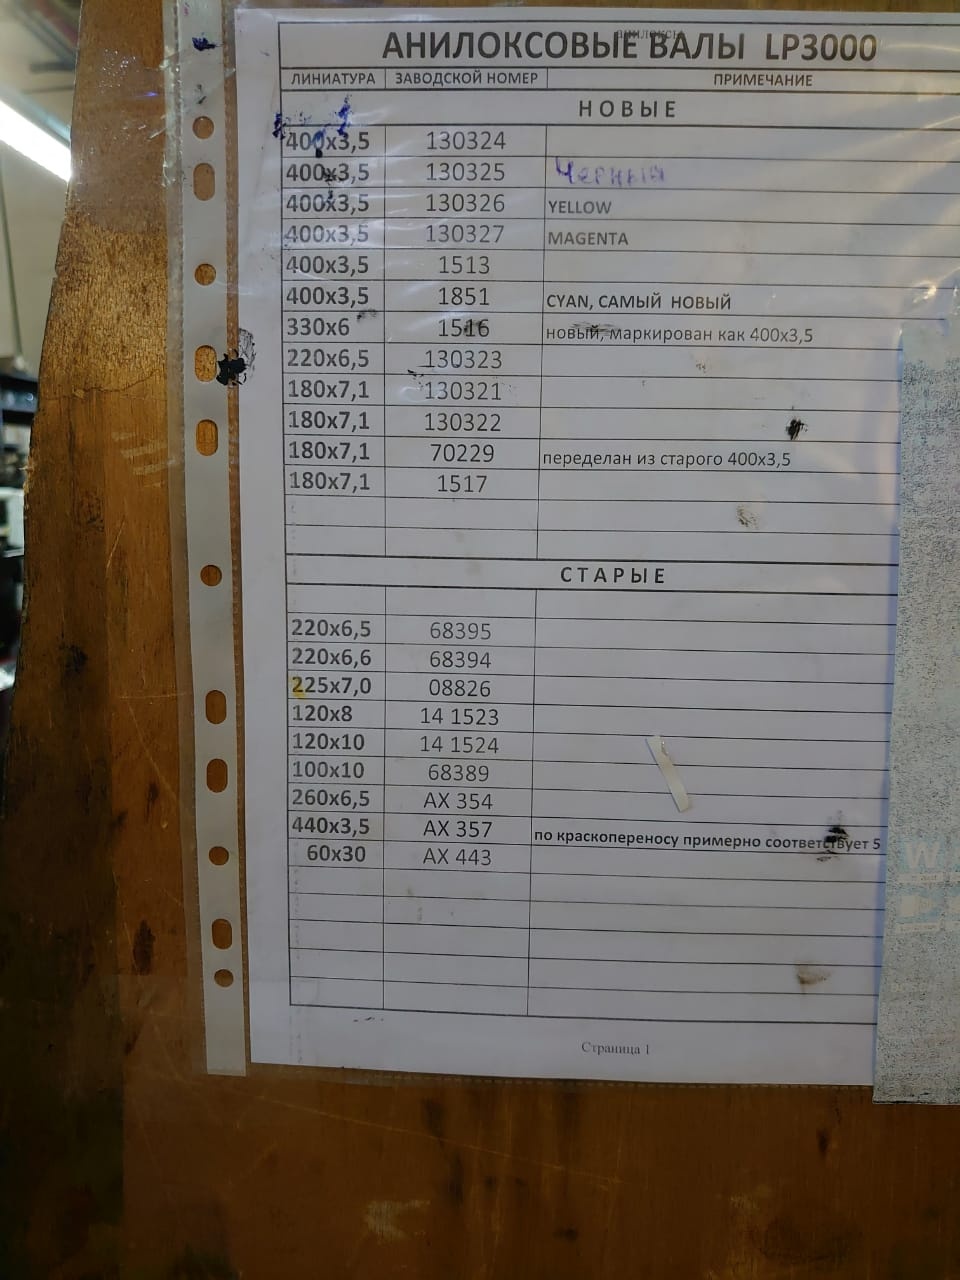 анилоксы
АНИЛОКСОВЫЕ ВАЛЫ LP3000
ЛИНИАТУРА ЗАВОДСКОЙ НОМЕР ПРИМЕЧАНИЕ
НОВЫЕ
400х3,5 130324
400х3,5 130325 Черный
400х3,5 130326 YELLOW
400х3,5 130327 MAGENTA
400х3,5 1513
400х3,5 1851 CYAN, САМЫЙ НОВЫЙ
330х6 1516 новый, маркирован как 400х3,5
220х6,5 130323
180х7,1 130321
180х7,1 130322
180х7,1 70229 переделан из старого 400х3,5
180х7,1 1517
СТАРЫЕ
220х6,5 68395
220х6,6 68394
225х7,0 08826
120х8 14 1523
120х10 14 1524
100х10 68389
260х6,5 АХ 354
440х3,5 АХ 357 по краскопереносу примерно соответствует 5
60х30 АХ 443
Страница 1